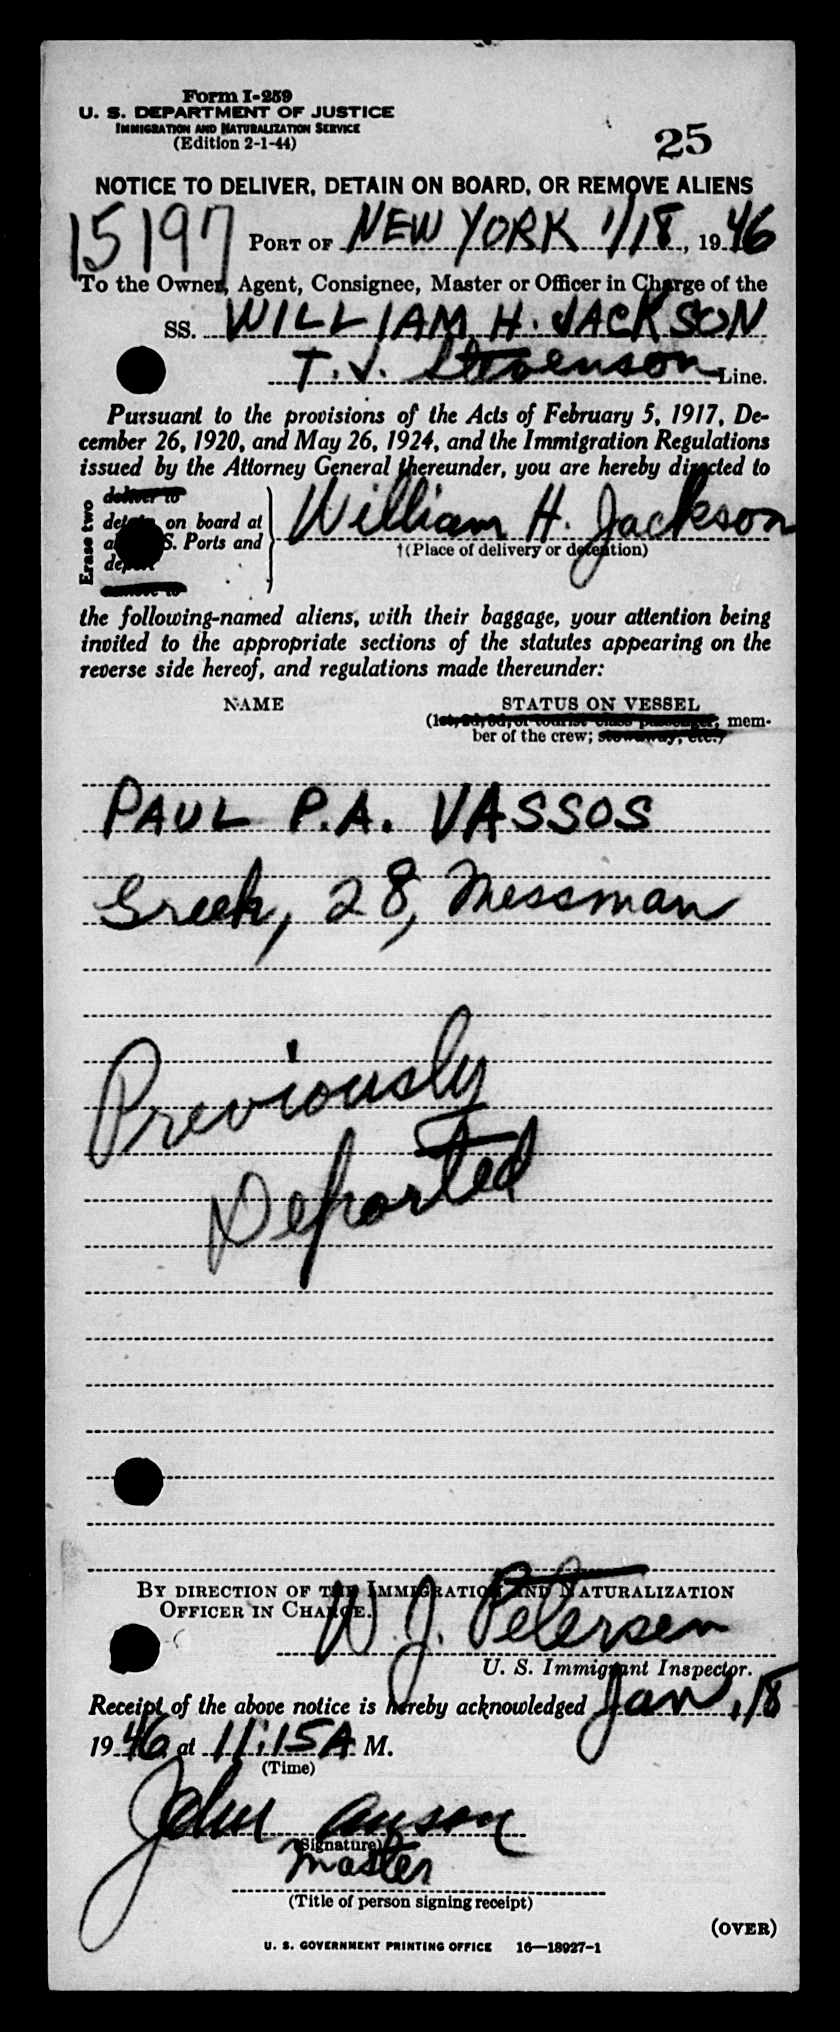 Form I-259
U. S. DEPARTMENT OF JUSTICE
IMMIGRATION AND NATURALIZATION SERVICE
(Edition 2-1-44)
25
NOTICE TO DELIVER, DETAIN ON BOARD, OR REMOVE ALIENS
15197
PORT OF NEW YORK 1/18, 1946
To the Owner, Agent, Consignee, Master or Officer in Charge of the
SS. WILLIAM H. JACKSON
T. J. Stevenson Line.
Pursuant to the provisions of the Acts of February 5, 1917, De-
cember 26, 1920, and May 26, 1924, and the Immigration Regulations
issued by the Attorney General thereunder, you are hereby directed to
Erase two
deliver to
detain on board at
S. Ports and
William H. Jackson
†(Place of delivery or detention)
remove to
the following-named aliens, with their baggage, your attention being
invited to the appropriate sections of the statutes appearing on the
reverse side hereof, and regulations made thereunder:
NAME STATUS ON VESSEL
(1st, 2d, 3d, or tourist class passenger; mem-
ber of the crew; stowaway, etc.)
PAUL P.A. VASSOS
Greek, 28, Messman
Previously
Deported
BY DIRECTION OF THE IMMIGRATION AND NATURALIZATION
OFFICER IN CHARGE.
W. J. Petersen
U. S. Immigrant Inspector.
Receipt of the above notice is hereby acknowledged Jan, 18
1946 at 11:15 A M.
(Time)
John
(Signature)
Master
(Title of person signing receipt)
(OVER)
U. S. GOVERNMENT PRINTING OFFICE 16—18927-1